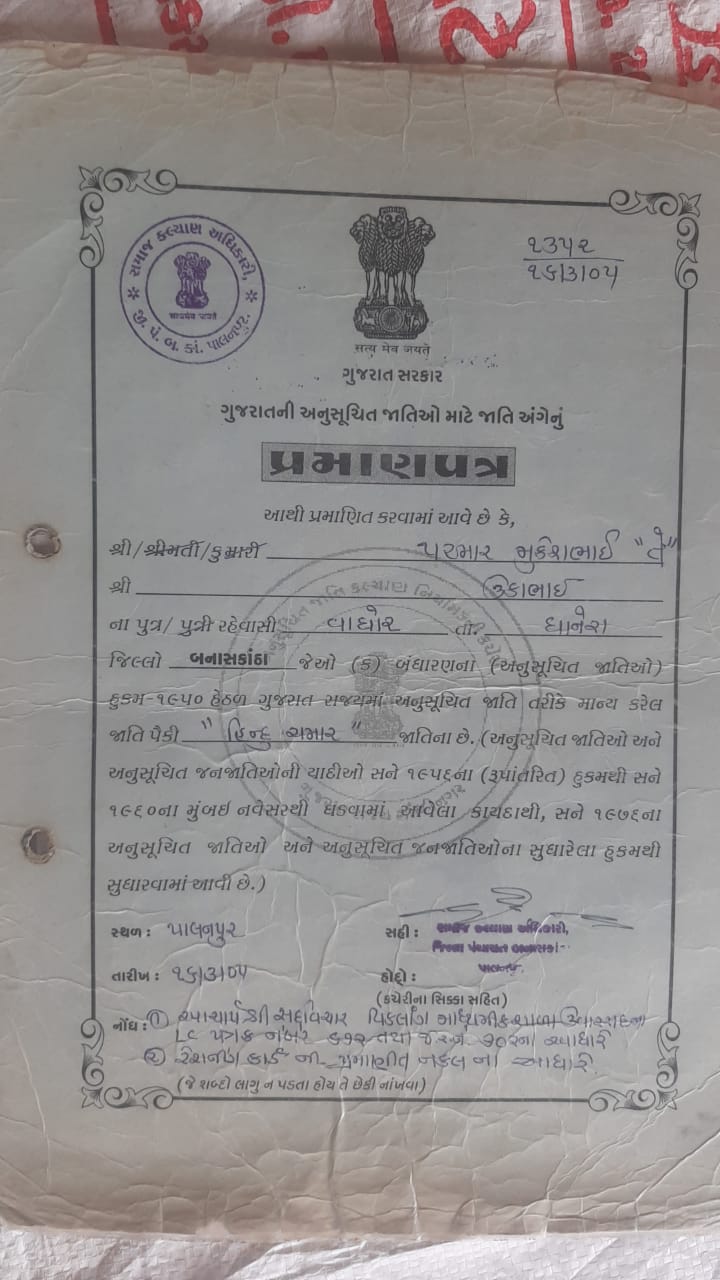 સમાજ કલ્યાણ અધિકારી,
સત્યમેવ જયતે
જી. પં. બ. કાં. પાલનપુર.
૧૩૫૨
૧૬/૩/૦૫
सत्य मेव जयते
ગુજરાત સરકાર
ગુજરાતની અનુસૂચિત જાતિઓ માટે જાતિ અંગેનું
પ્રમાણપત્ર
આથી પ્રમાણિત કરવામાં આવે છે કે,
શ્રી/શ્રીમતી/કુમારી પરમાર મુકેશભાઈ "તે"
શ્રી ઉકાભાઈ
ના પુત્ર/ પુત્રી રહેવાસી વાઘોર તા. ધાનેરા
જિલ્લો બનાસકાંઠા જેઓ (ક) બંધારણના (અનુસૂચિત જાતિઓ)
હુકમ-૧૯૫૦ હેઠળ ગુજરાત રાજ્યમાં અનુસૂચિત જાતિ તરીકે માન્ય કરેલ
જાતિ પૈકી " હિન્દુ ચમાર " જાતિના છે. (અનુસૂચિત જાતિઓ અને
અનુસૂચિત જનજાતિઓની યાદીઓ સને ૧૯૫૬ના (રૂપાંતરિત) હુકમથી સને
૧૯૬૦ના મુંબઇ નવેસરથી ઘડવામાં આવેલા કાયદાથી, સને ૧૯૭૬ના
અનુસૂચિત જાતિઓ અને અનુસૂચિત જનજાતિઓના સુધારેલા હુકમથી
સુધારવામાં આવી છે.)
સ્થળ : પાલનપુર
સહી : સમાજ કલ્યાણ અધિકારી,
જિલ્લા પંચાયત બનાસકાં
પાલનપુ
તારીખ : ૧૬/૩/૦૫
હોદ્દો :
(કચેરીના સિક્કા સહિત)
નોંધ : ① આચાર્ય શ્રી સદવિચાર વિકલાંગ માધ્યમિક શાળા
LC પત્રક નંબર ૬૧૨ તથા જ.ર.નં. ૭૦૨ના આધારે
② રેશનીંગ કાર્ડ ની પ્રમાણીત નકલ ના આધારે.
(જે શબ્દો લાગુ ન પડતા હોય તે છેકી નાંખવા)